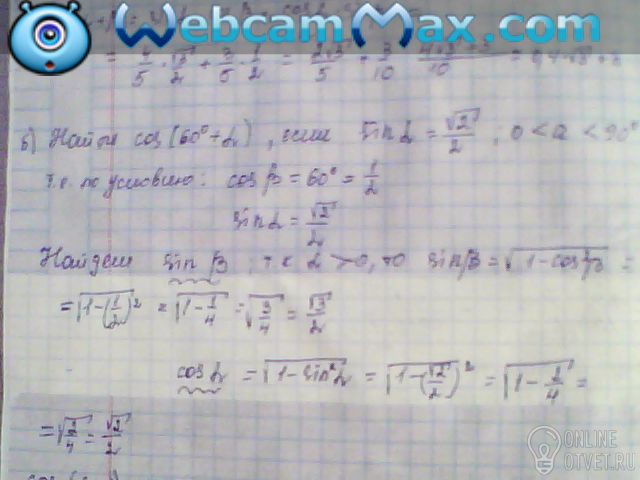 WebcamMax.com
= 4/5 · √3/2 + 3/5 · 1/2 =
б) Найти cos(60°+α), если sin α = √2/2; 0 < α < 90°
т.к. по условию: cos β = 60° = 1/2
sin α = √2/2
Найдем sin β; т.к α > 0, то sin β = √1-cos²β =
= √1-(1/2)² = √1-1/4 = √3/4 = √3/2
cos α = √1-sin²α = √1-(√2/2)² = √1-2/4 =
= √2/4 = √2/2
ONLINE
OTVET.RU